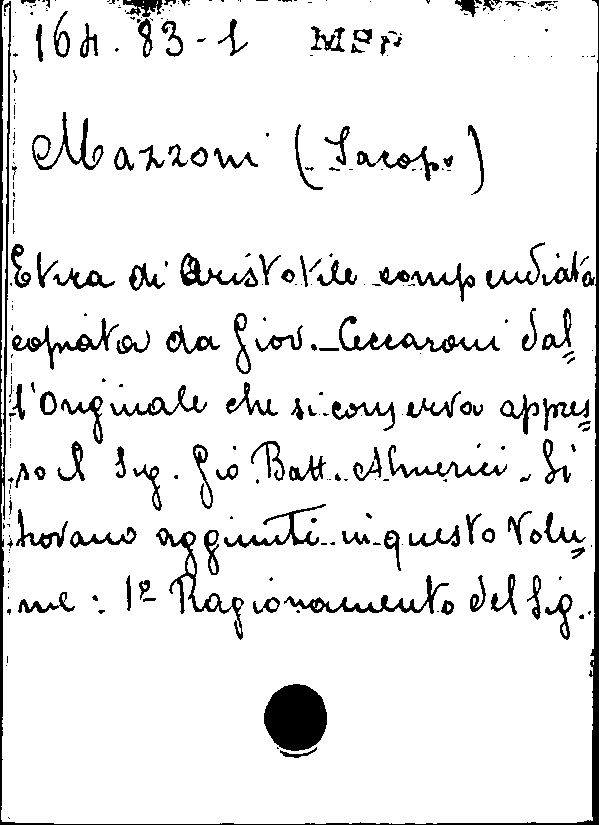 164. 83-1 MSP
Mazzoni (Jacopo)
Etica di Aristotile compendiata
copiata da Giov. Ceccaroni dal=
l'Originale che si conserva appres=
so il Sig. Gio Batt. Almerici. Si
trovano aggiunti in questo Volu=
me : 1º Ragionamento del Sig.